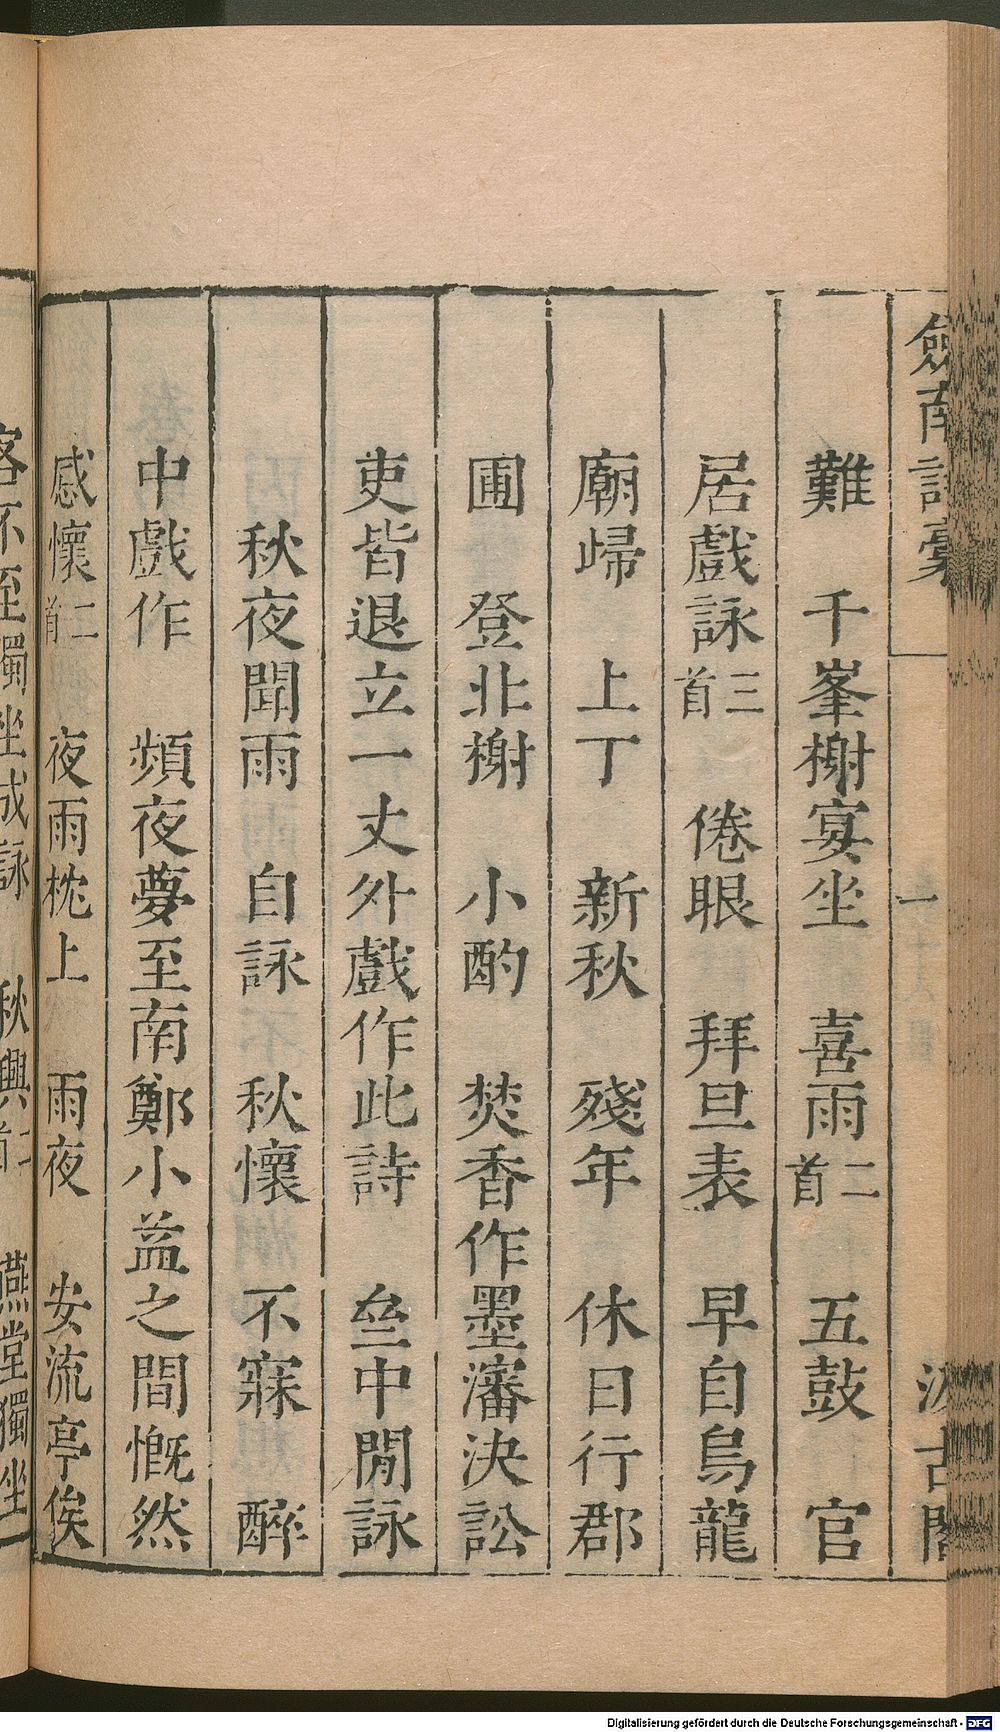 劒南詩稾 一 汲古閣
難 千峯榭宴坐 喜雨二首 五鼓 官
居戲詠三首 倦眼 拜旦表 早自烏龍
廟歸 上丁 新秋 殘年 休日行郡
圃 登北榭 小酌 焚香作墨瀋決訟
吏皆退立一丈外戲作此詩 垒中閒詠
秋夜聞雨 自詠 秋懷 不寐 醉
中戲作 頻夜夢至南鄭小益之間慨然
感懷二首 夜雨枕上 雨夜 安流亭俟
客不至獨坐成詠 秋興二首 燕堂獨坐
Digitalisierung gefördert durch die Deutsche Forschungsgemeinschaft - DFG